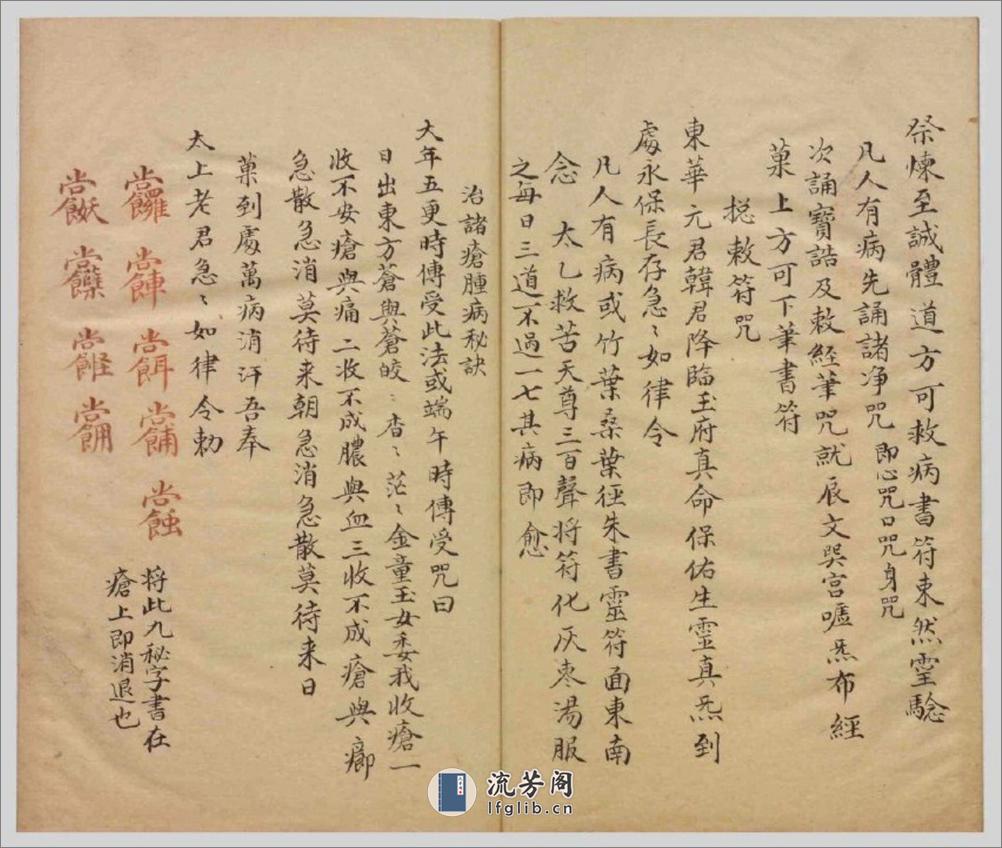 祭煉至誠體道方可救病書符朿然㚑驗
凡人有病先誦諸净咒即心咒口咒身咒
次誦寶誥及敕經筆咒就辰文巽宮噓炁布經
菓上方可下筆書符
捴敕符咒
東華元君韓君降臨玉府真命保佑生靈真炁到
處永保長存急〻如律令
凡人有病或竹葉桑葉徑朱書靈符面東南
念 太乙救苦天尊三百聲将符化灰枣湯服
之每日三道不過一七其病即愈
治諸瘡腫病秘訣
大年五更時傳受此法或端午時傳受咒曰
日出東方蒼與蒼皎〻杳〻茫〻金童玉女委我收瘡一
收不安瘡與痛二收不成膿與血三收不成瘡與癤
急散急消莫待来朝急消急散莫待来日
菓到處萬病消汗吾奉
太上老君急〻如律令勅
将此九秘字書在
瘡上即消退也
流芳阁
lfglib.cn